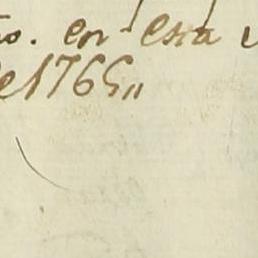 o. en esta
de 1765,,